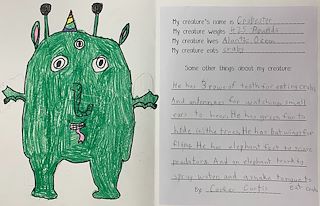 My creature's name is
My creature weighs
My creature lives Atlantic Ocean
My creature eats crabs
Some other things about my creature:
He has 3 rows of teeth for eating crabs
And antennas for watching small
ears to hear. He has green fur to
hide in the trees. He has bat wings for
flying. He has elephant feet to scare
predators. And an elephant trunk to
spray water and a snake tongue to
By: Curtis eat crabs